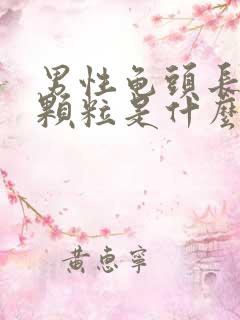 男性龟頭長
顆粒是什麼
黃惠寧